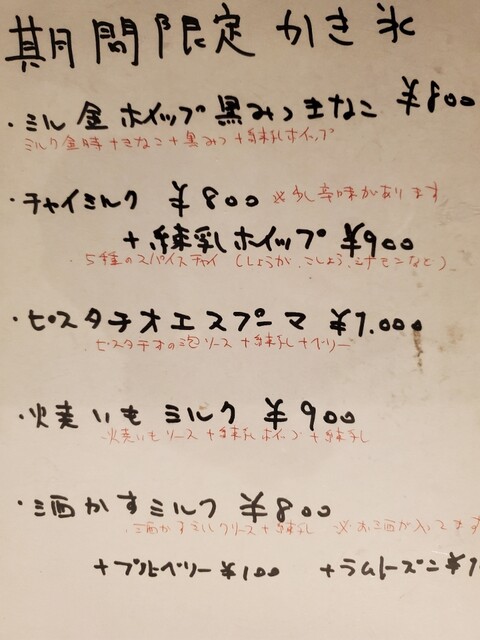 期間限定 かき氷
・ミル金ホイップ黒みつきなこ ¥800
ミルク金時+きなこ+黒みつ+練乳ホイップ
・チャイミルク ¥800 ※少し辛味があります
+練乳ホイップ ¥900
・5種のスパイスチャイ (しょうが、こしょう、シナモンなど)
・ピスタチオエスプーマ ¥1.000
・ピスタチオの泡ソース+練乳+ベリー
・焼いもミルク ¥900
焼いもソース+練乳ホイップ+練乳
・酒かすミルク ¥800
・酒かすミルクソース+練乳 ※お酒が入ってます
+ブルーベリー ¥100 +ラムレーズン ¥1